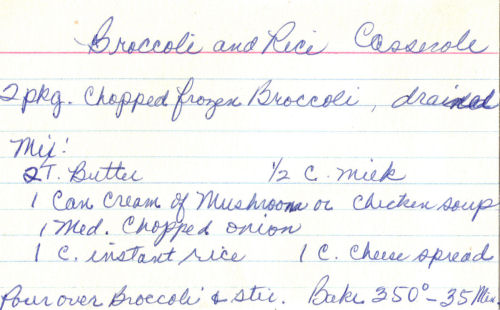 Broccoli and Rice Casserole
2 pkg. Chopped frozen Broccoli, drained
Mix:
2T. Butter 1/2 C. milk
1 Can Cream of Mushroom or Chicken soup
1 Med. Chopped onion
1 C. instant rice 1 C. Cheese spread
Pour over Broccoli & stir. Bake 350° - 35 Min.